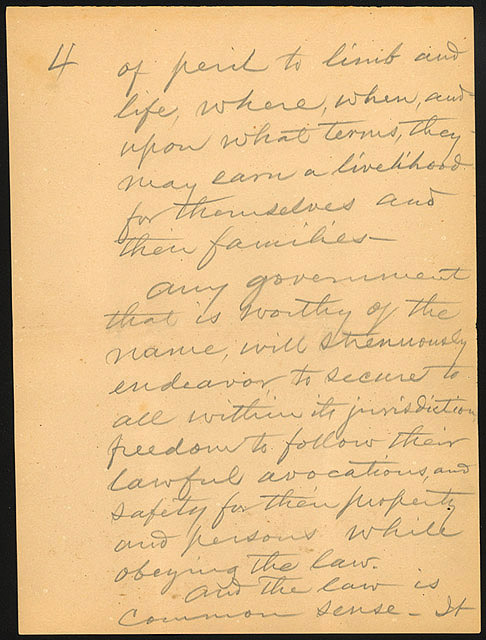 4
of peril to limb and
life, where, when, and
upon what terms, they
may earn a livelihood
for themselves and
their families—
Any government
that is worthy of the
name, will strenuously
endeavor to secure to
all within its jurisdiction
freedom to follow their
lawful avocations, and
safety for their property
and persons while
obeying the law.
And the law is
common sense— It